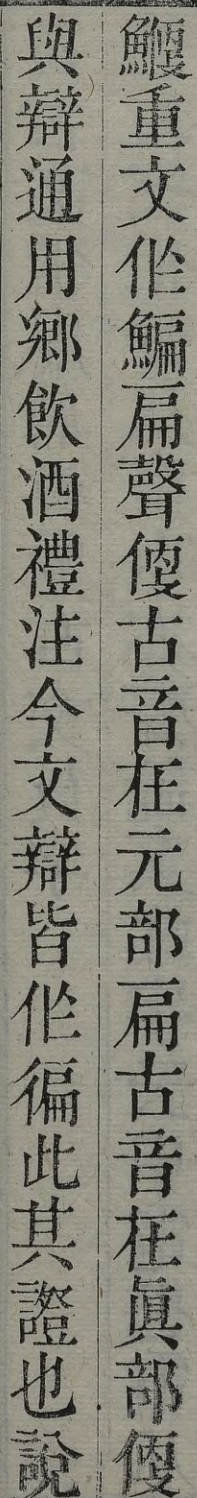 鰋重文作鯿扁聲偄古音在元部扁古音在眞部偄
與辯通用鄉飲酒禮注今文辯皆作徧此其證也說